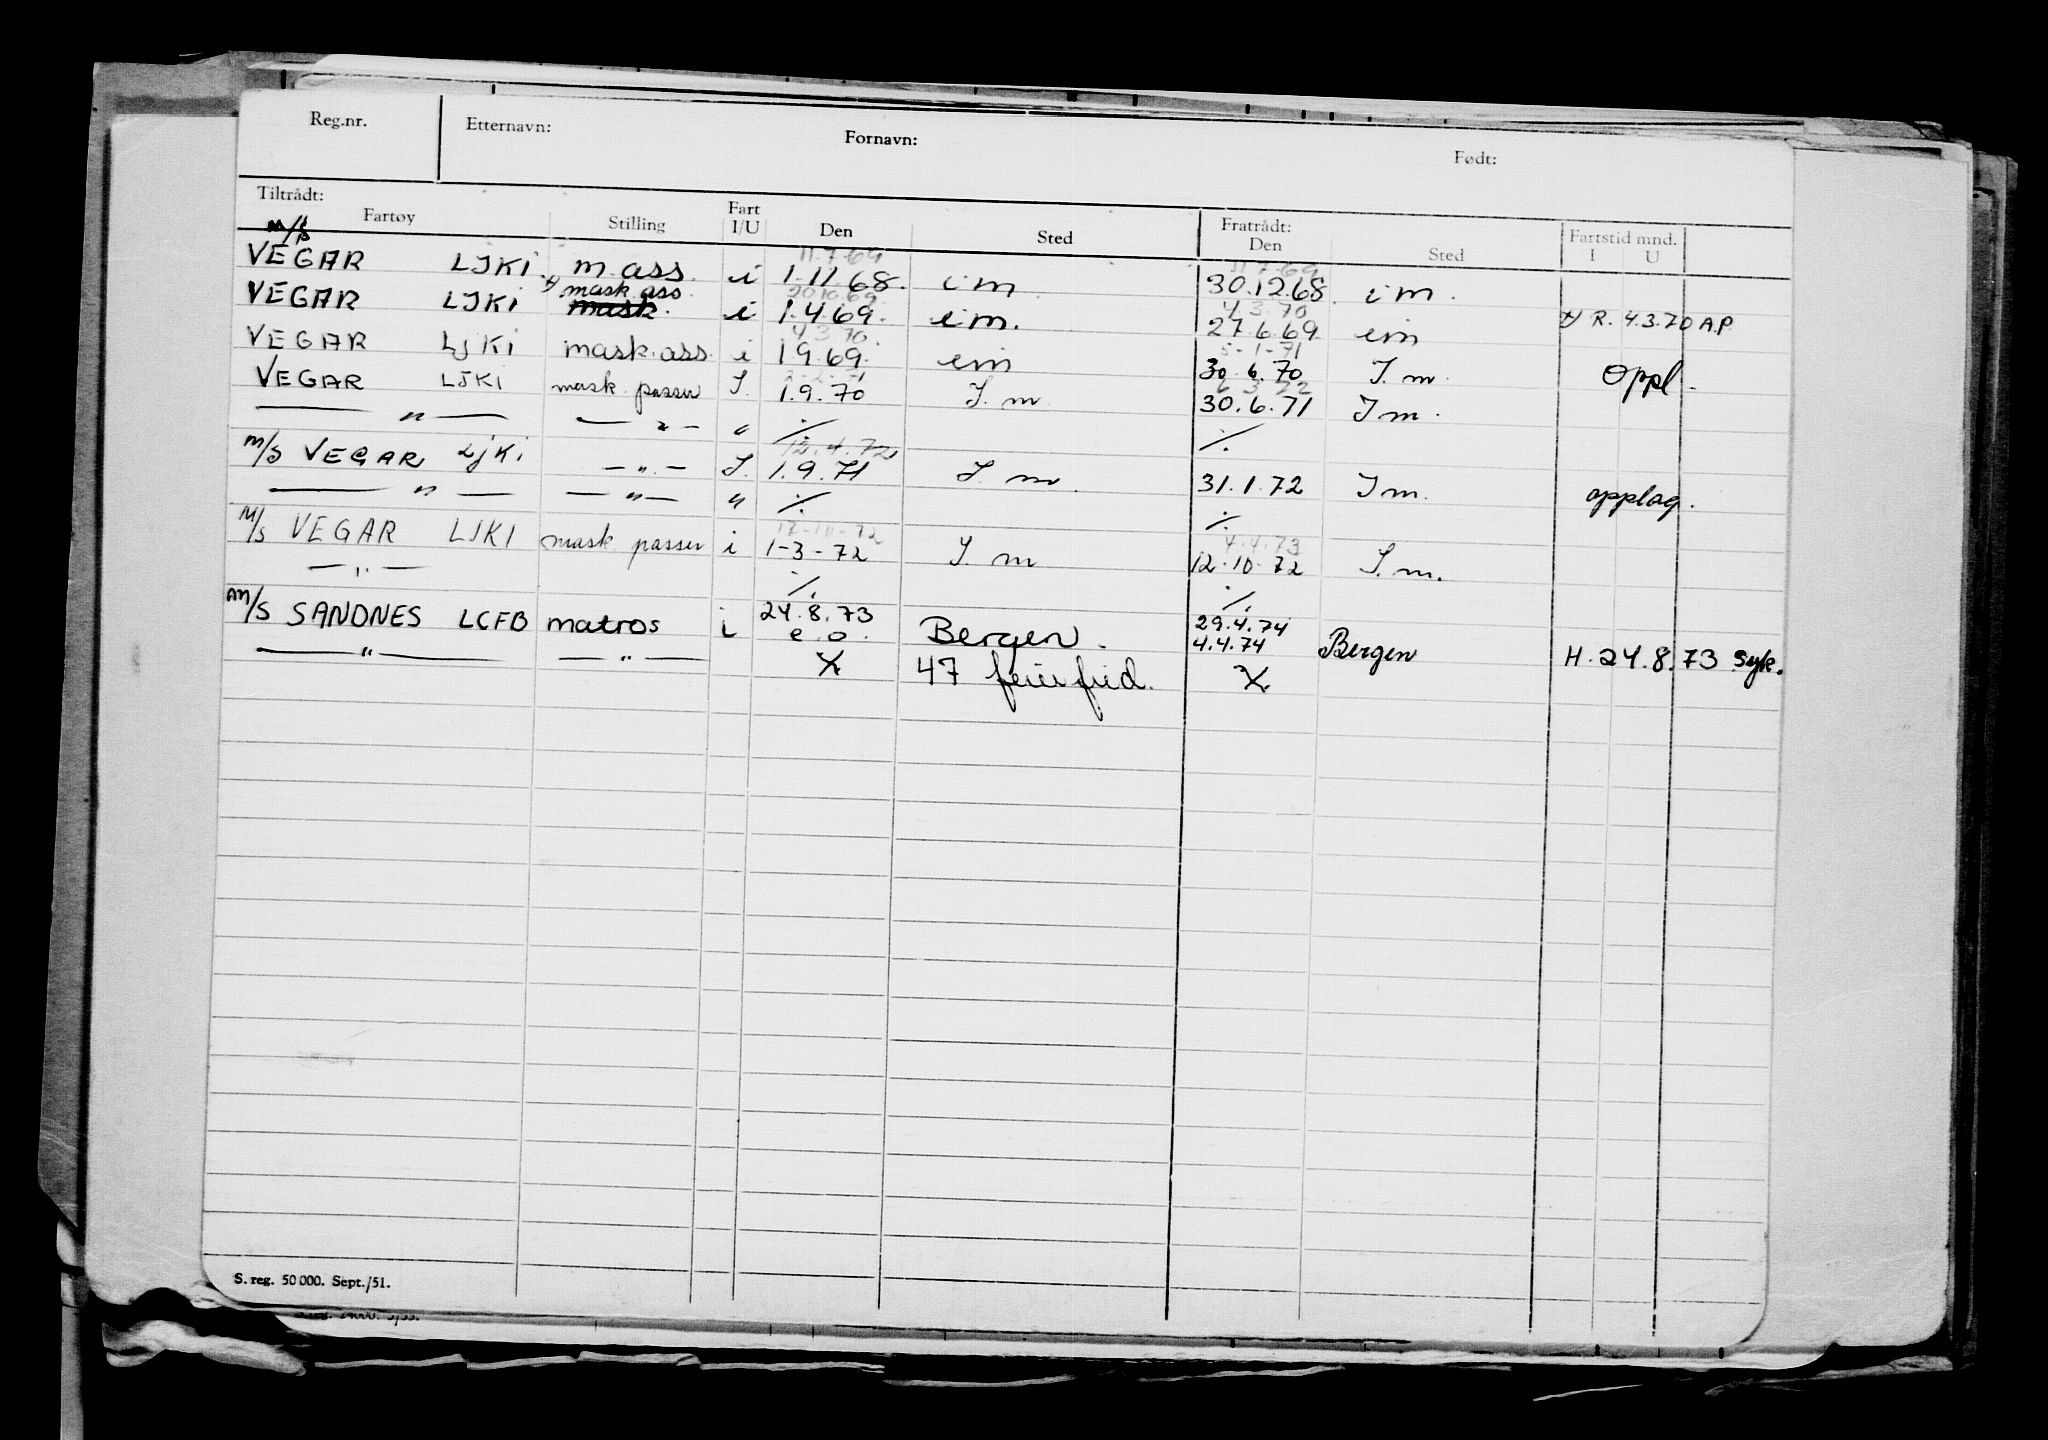 Reg.nr. Etternavn: Fornavn: Født:
Tiltrådt: Fratrådt:
Fartøy Stilling Fart I/U Den Sted Den Sted Fartstid mnd. I U
M/S
11.7.69 11.7.69
VEGAR LJKI. m.ass. i 1.11.68. im 30.12.68. im.
x) mask.ass. 20.10.69. 4.3.70
VEGAR LJKI mask. i 1.4.69. im. 27.6.69. im x) R. 4.3.70 A.P.
4.3.70. 5-1-71
VEGAR LJKI mask.ass. i 1.9.69. im 30.6.70 I.m. Oppl.
VEGAR LJKI mask. passer I. 1.9.70 I.m 30.6.71 Im.
— " — — " — " ./. ./.
12.4.72
M/S VEGAR LJKI — " — I. 1.9.71 I m. 31.1.72 Im. opplag.
— " — — " — " ./. ./.
17-10-72 4.4.73
M/S VEGAR LJKI mask passer i 1-3-72 I.m 12.10.72 I.m.
— " — ./. ./.
AM/S SANDNES LCFB matros i 24.8.73 Bergen. 29.4.74
e.o. 4.4.74 Bergen H. 24.8.73 syk.
— " — — " — ./. 47 feriefrid. ./.
S. reg. 50 000. Sept./51.